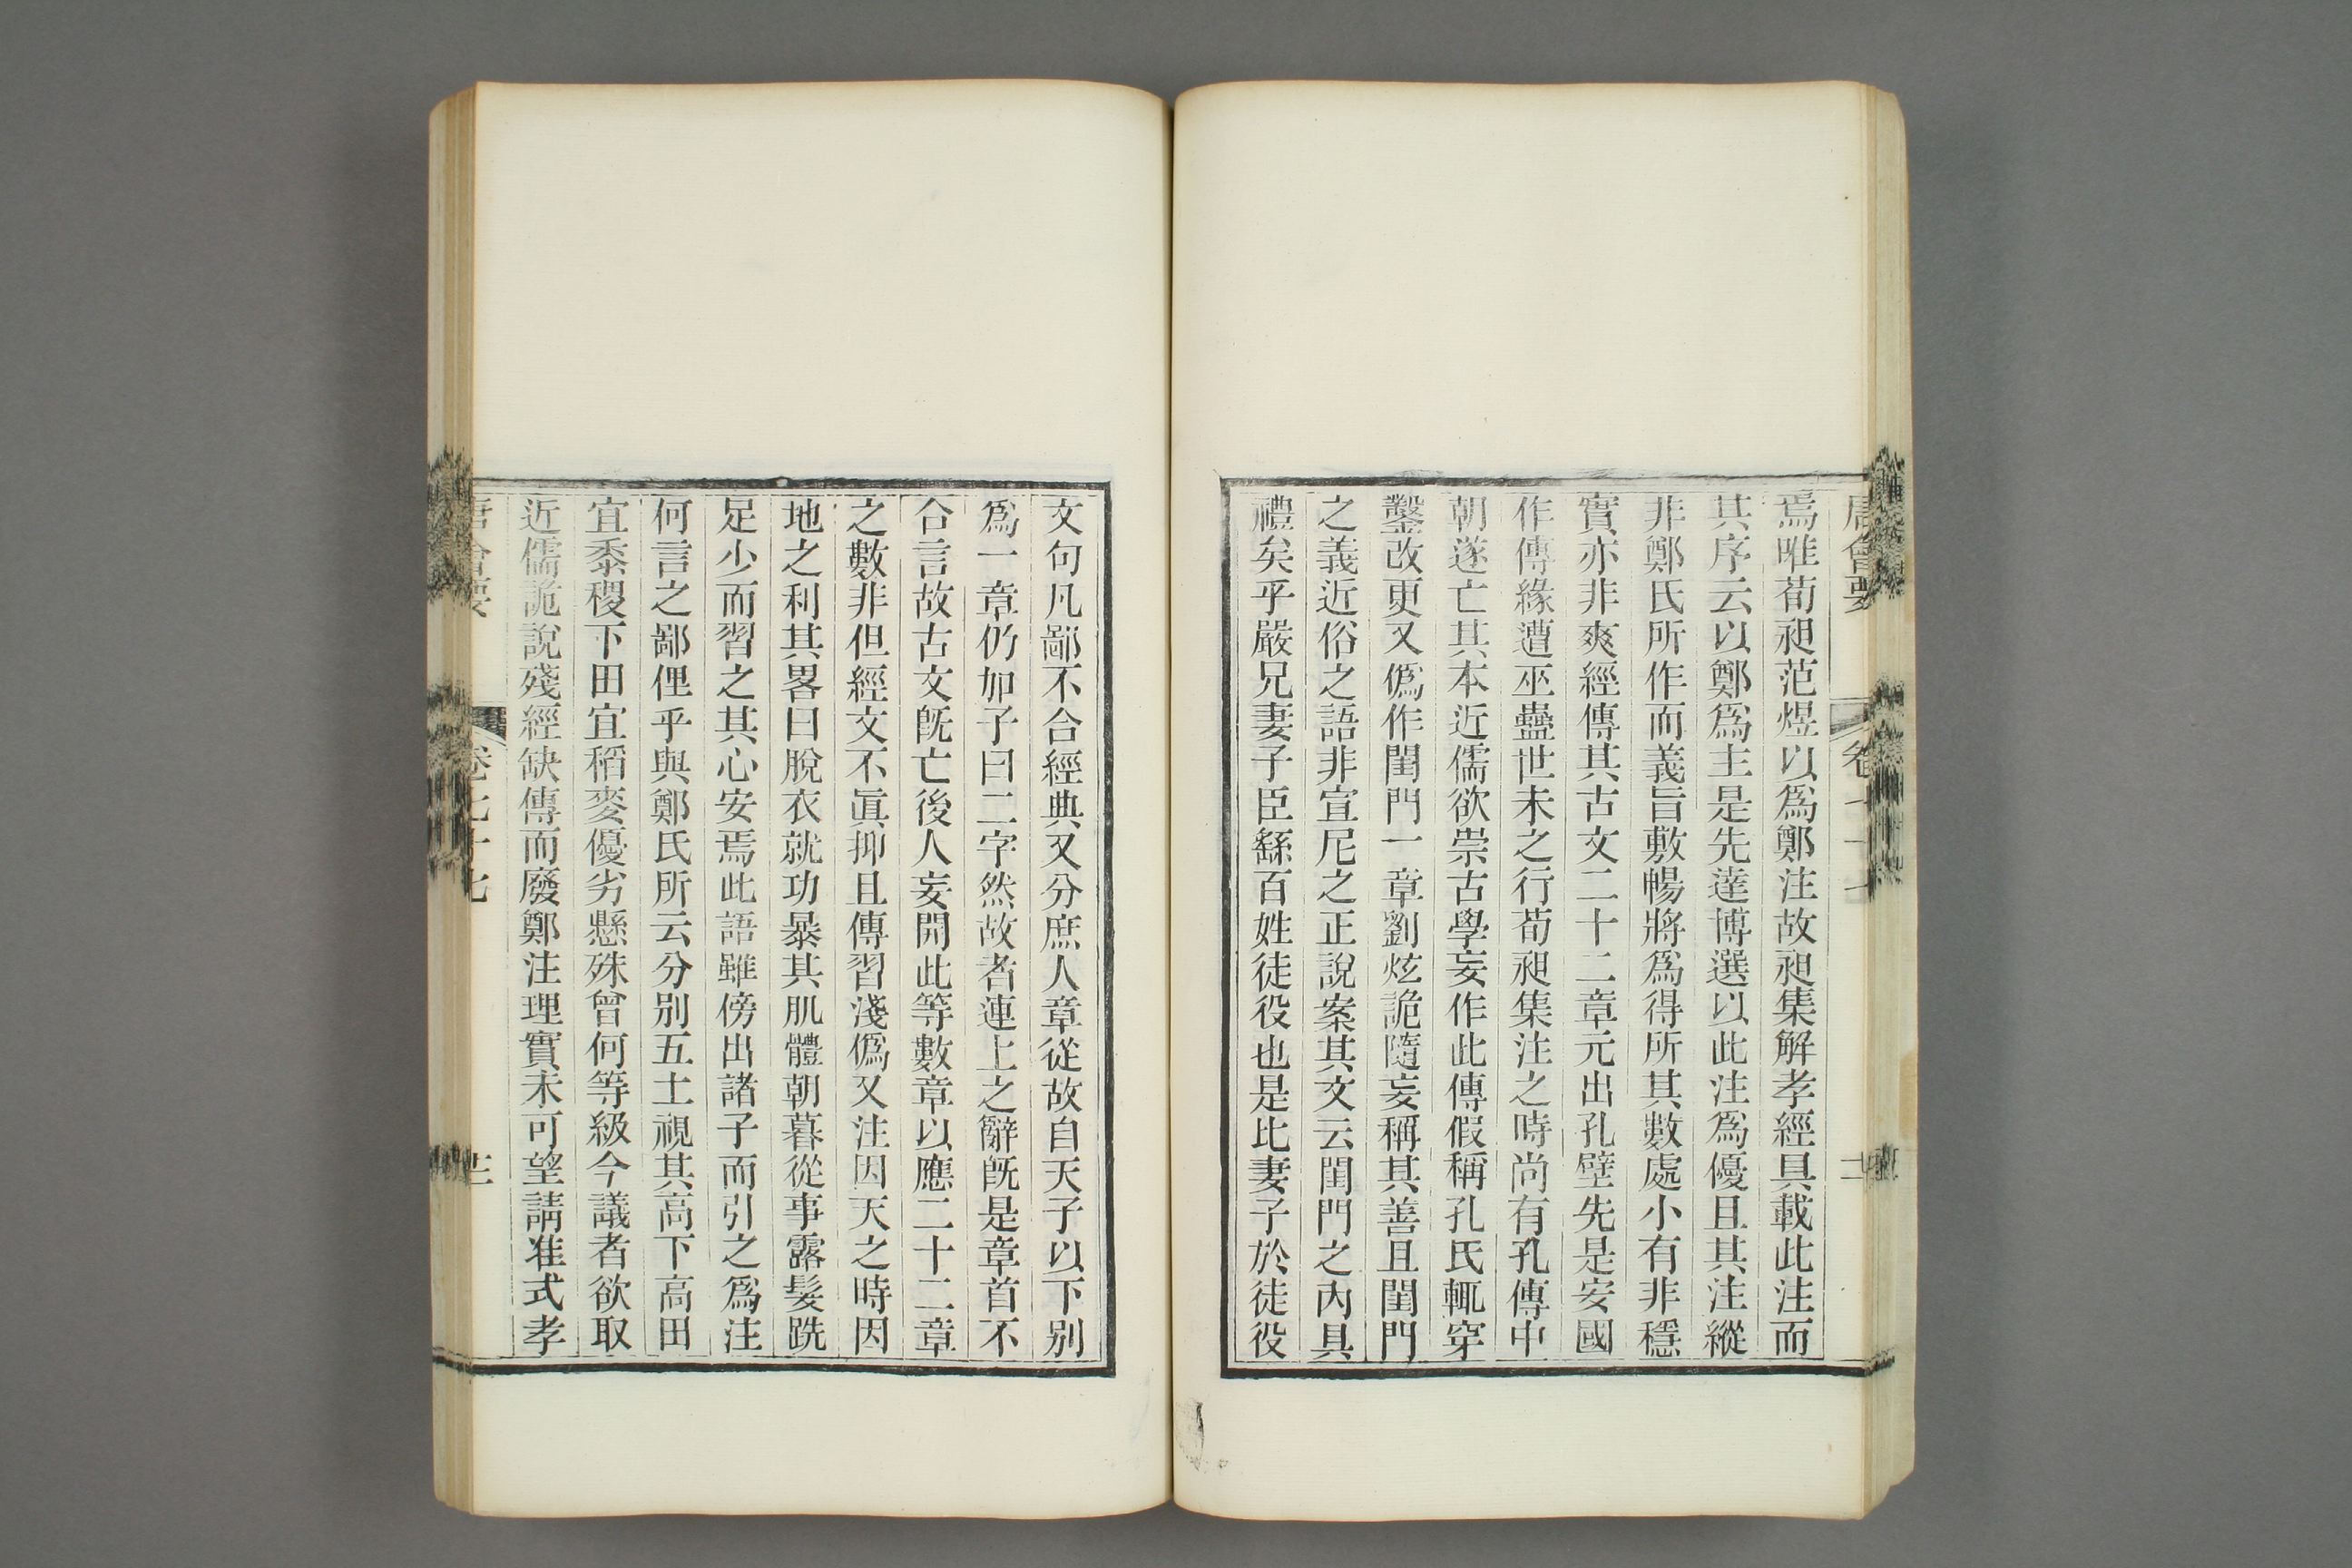 唐會要 卷
焉唯荀昶范煜以爲鄭注故昶集解孝經具載此注而
其序云以鄭爲主是先達博選以此注爲優且其注縱
非鄭氏所作而義旨敷暢將爲得所其數處小有非穩
實亦非爽經傳其古文二十二章元出孔壁先是安國
作傳緣遭巫蠱世未之行荀昶集注之時尚有孔傳中
朝遂亡其本近儒欲崇古學妄作此傳假稱孔氏輒穿
鑿改更又僞作閨門一章劉炫詭隨妄稱其善且閨門
之義近俗之語非宣尼之正說案其文云閨門之內具
禮矣乎嚴兄妻子臣繇百姓徒役也是比妻子於徒役
文句凡鄙不合經典又分庶人章從故自天子以下別
爲一章仍加子曰二字然故者連上之辭旣是章首不
合言故古文旣亡後人妄開此等數章以應二十二章
之數非但經文不眞抑且傳習淺僞又注因天之時因
地之利其畧曰脫衣就功暴其肌體朝暮從事露髮跣
足少而習之其心安焉此語雖傍出諸子而引之爲注
何言之鄙俚乎與鄭氏所云分別五土視其高下高田
宜黍稷下田宜稻麥優劣懸殊曾何等級今議者欲取
近儒詭說殘經缺傳而廢鄭注理實未可望請准式孝
唐會要 卷七十七